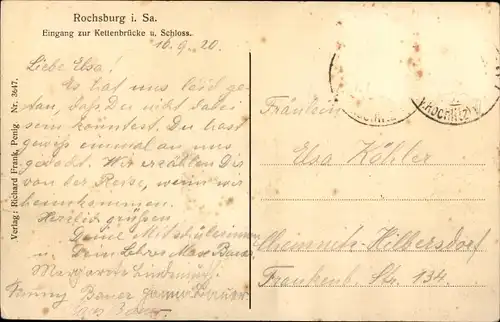 Rochsburg i. Sa.
Eingang zur Kettenbrücke u. Schloss.
10.9.20.
Liebe Elsa!
Es hat uns leid ge-
tan, daß Du nicht dabei
sein konntest. Du hast
gewiß einmal an uns
gedacht. Wir erzählen Dir
von der Reise, wenn wir
heimkommen.
Herzlich grüßen
Deine Mitschülerinnen
u. Dein Lehrer Max Bauer
Margarete
Bauer
Verlag: Richard Frank, Penig Nr. 3647.
Fräulein
Elsa Köhler
Chemnitz-Hilbersdorf
Frankenb. Str. 134.